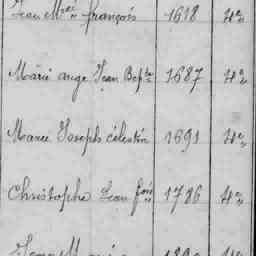 Jean Mie françois 1618 4e
Marie ange Jean Bapte 1687 4e
Marie Joseph célestin 1691 4e
Christophe Jean fois 1786 4e